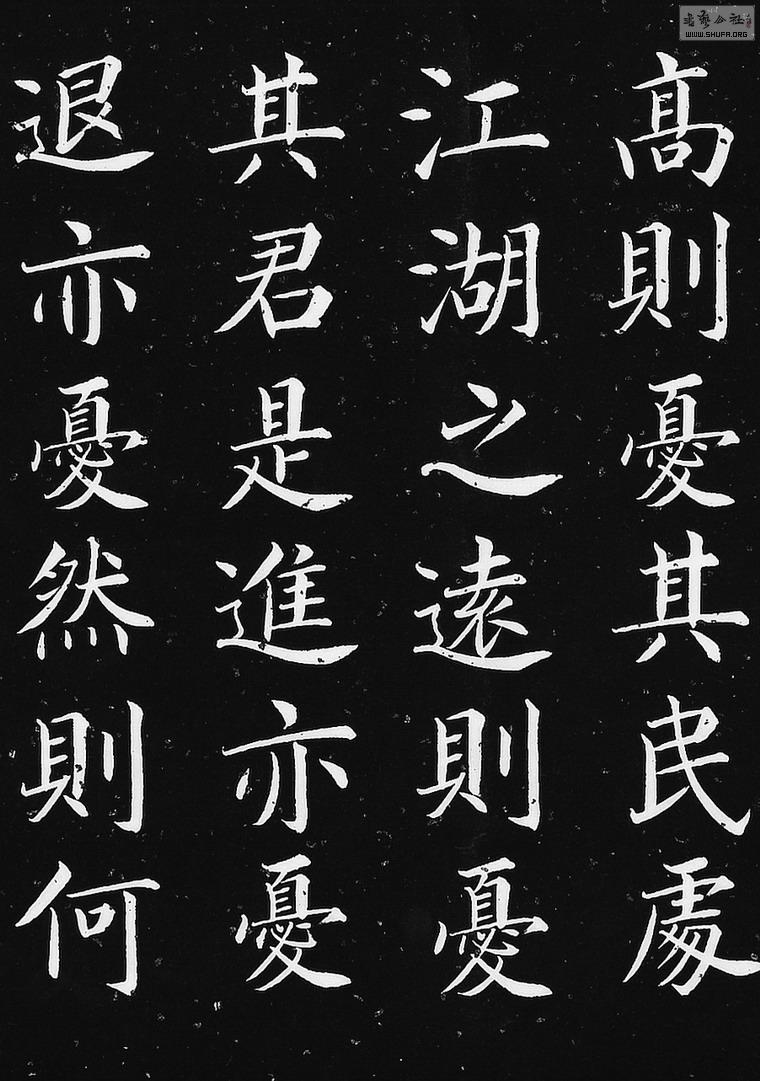 高則憂其民處
江湖之遠則憂
其君是進亦憂
退亦憂然則何
WWW.SHUFA.ORG